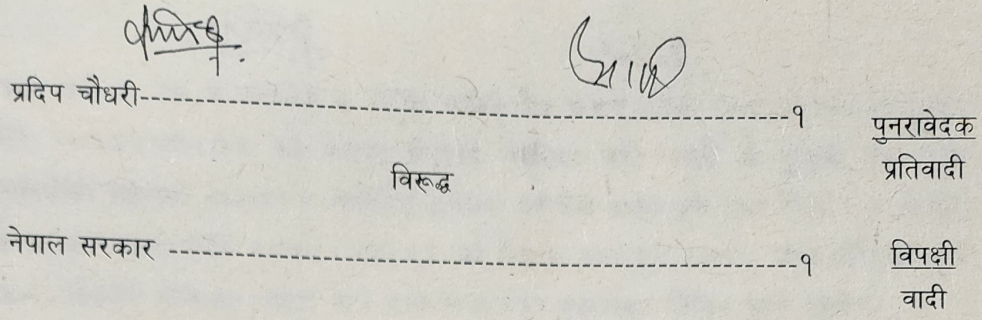 प्रदिप चौधरी------------------------------------------------------------१ पुनरावेदक
प्रतिवादी
विरूद्ध
नेपाल सरकार ----------------------------------------------------------१ विपक्षी
वादी